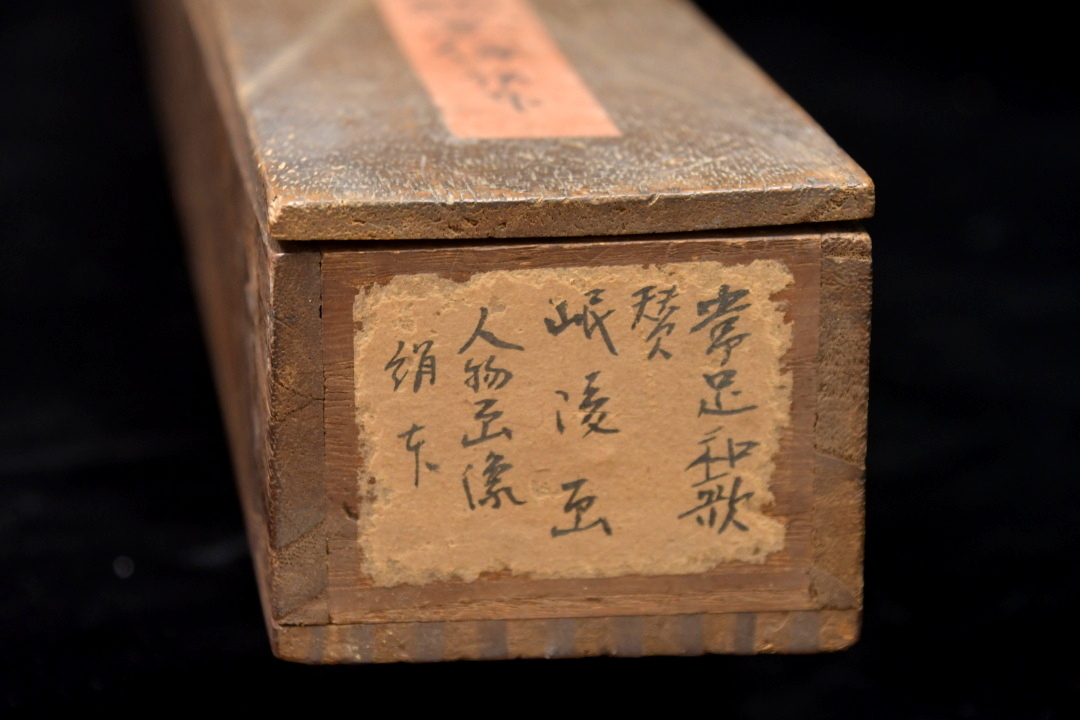 常足和歌
賛
岷陵画
人物画像
絹本